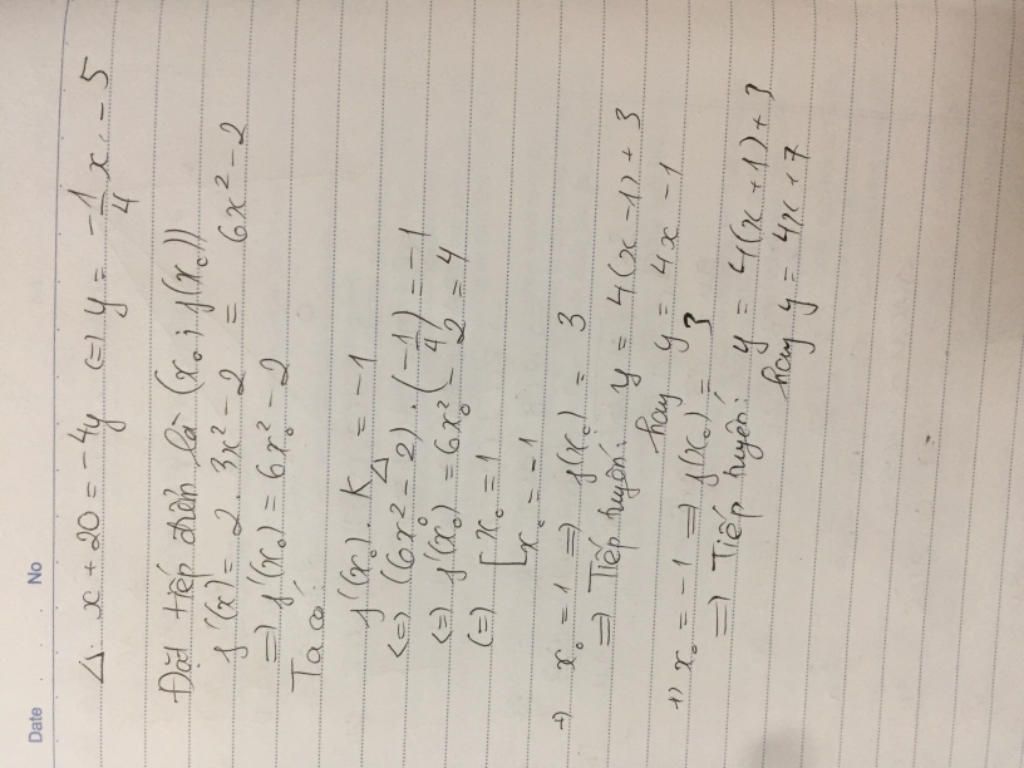 Date No
Δ: x + 20 = -4y (=) y = -1/4 x - 5
Đặt tiếp điểm là (x₀; f(x₀))
f'(x) = 2. 3x² - 2 = 6x² - 2
=) f'(x₀) = 6x₀² - 2
Ta có:
f'(x₀). K_Δ = -1
<=> (6x₀² - 2). (-1/4) = -1
<=) f'(x₀) = 6x₀² - 2 = 4
(=) [x₀ = 1
x₀ = -1
+) x₀ = 1 =) f(x₀) = 3
=) Tiếp tuyến: y = 4(x - 1) + 3
hay y = 4x - 1
+) x₀ = -1 =) f(x₀) = 3
=) Tiếp tuyến: y = 4(x + 1) + 3
hay y = 4x + 7